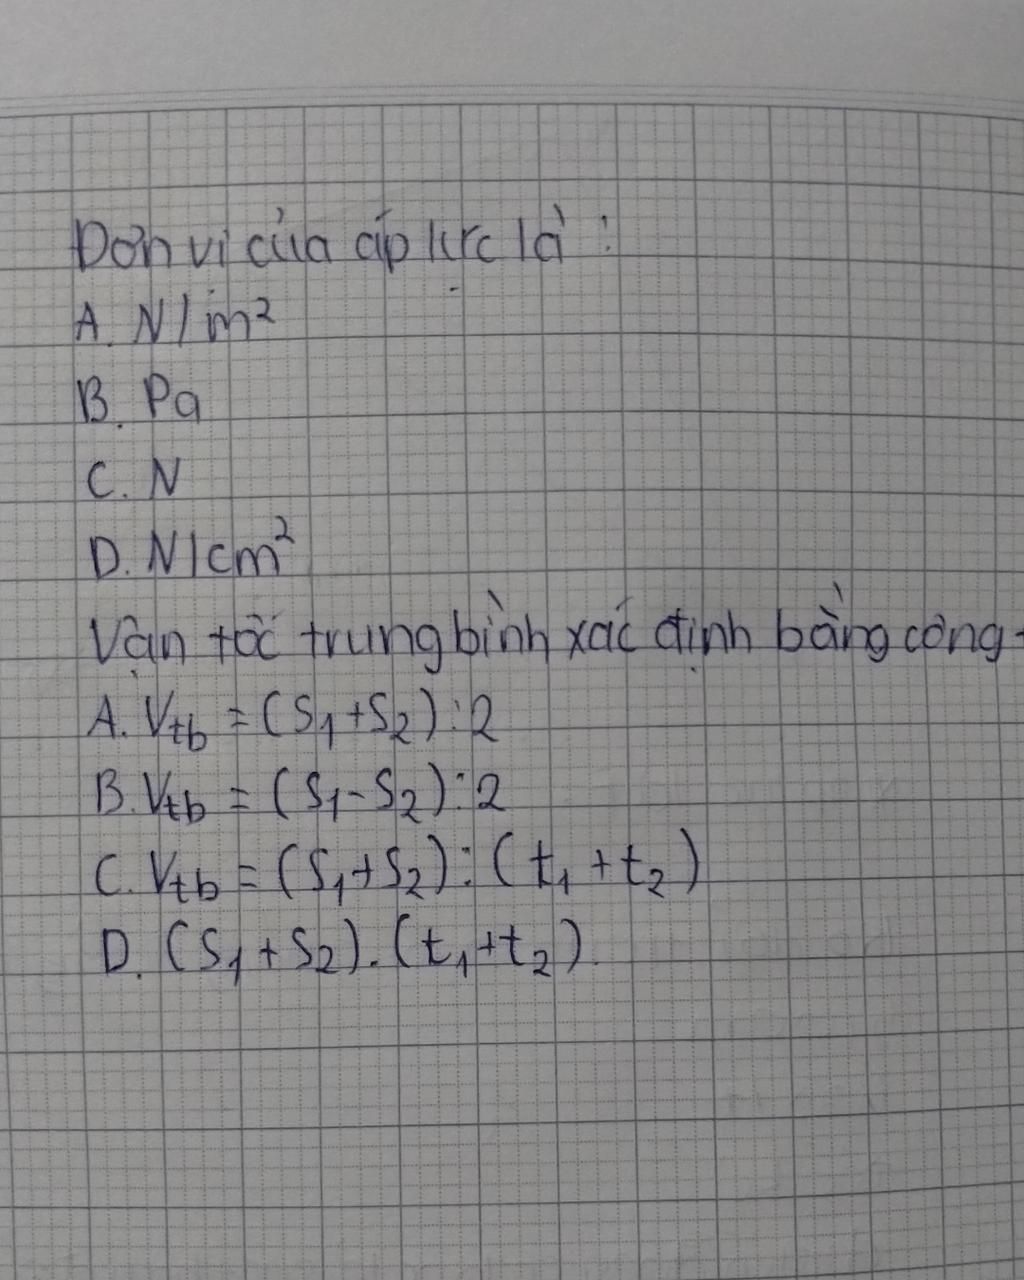 Đơn vị của áp lực là :
A. N/m²
B. Pa
C. N
D. N/cm²
Vận tốc trung bình xác định bằng công
A. Vtb = (S₁+S₂) : 2
B. Vtb = (S₁-S₂) : 2
C. Vtb = (S₁+S₂) : (t₁+t₂)
D. (S₁+S₂).(t₁+t₂).